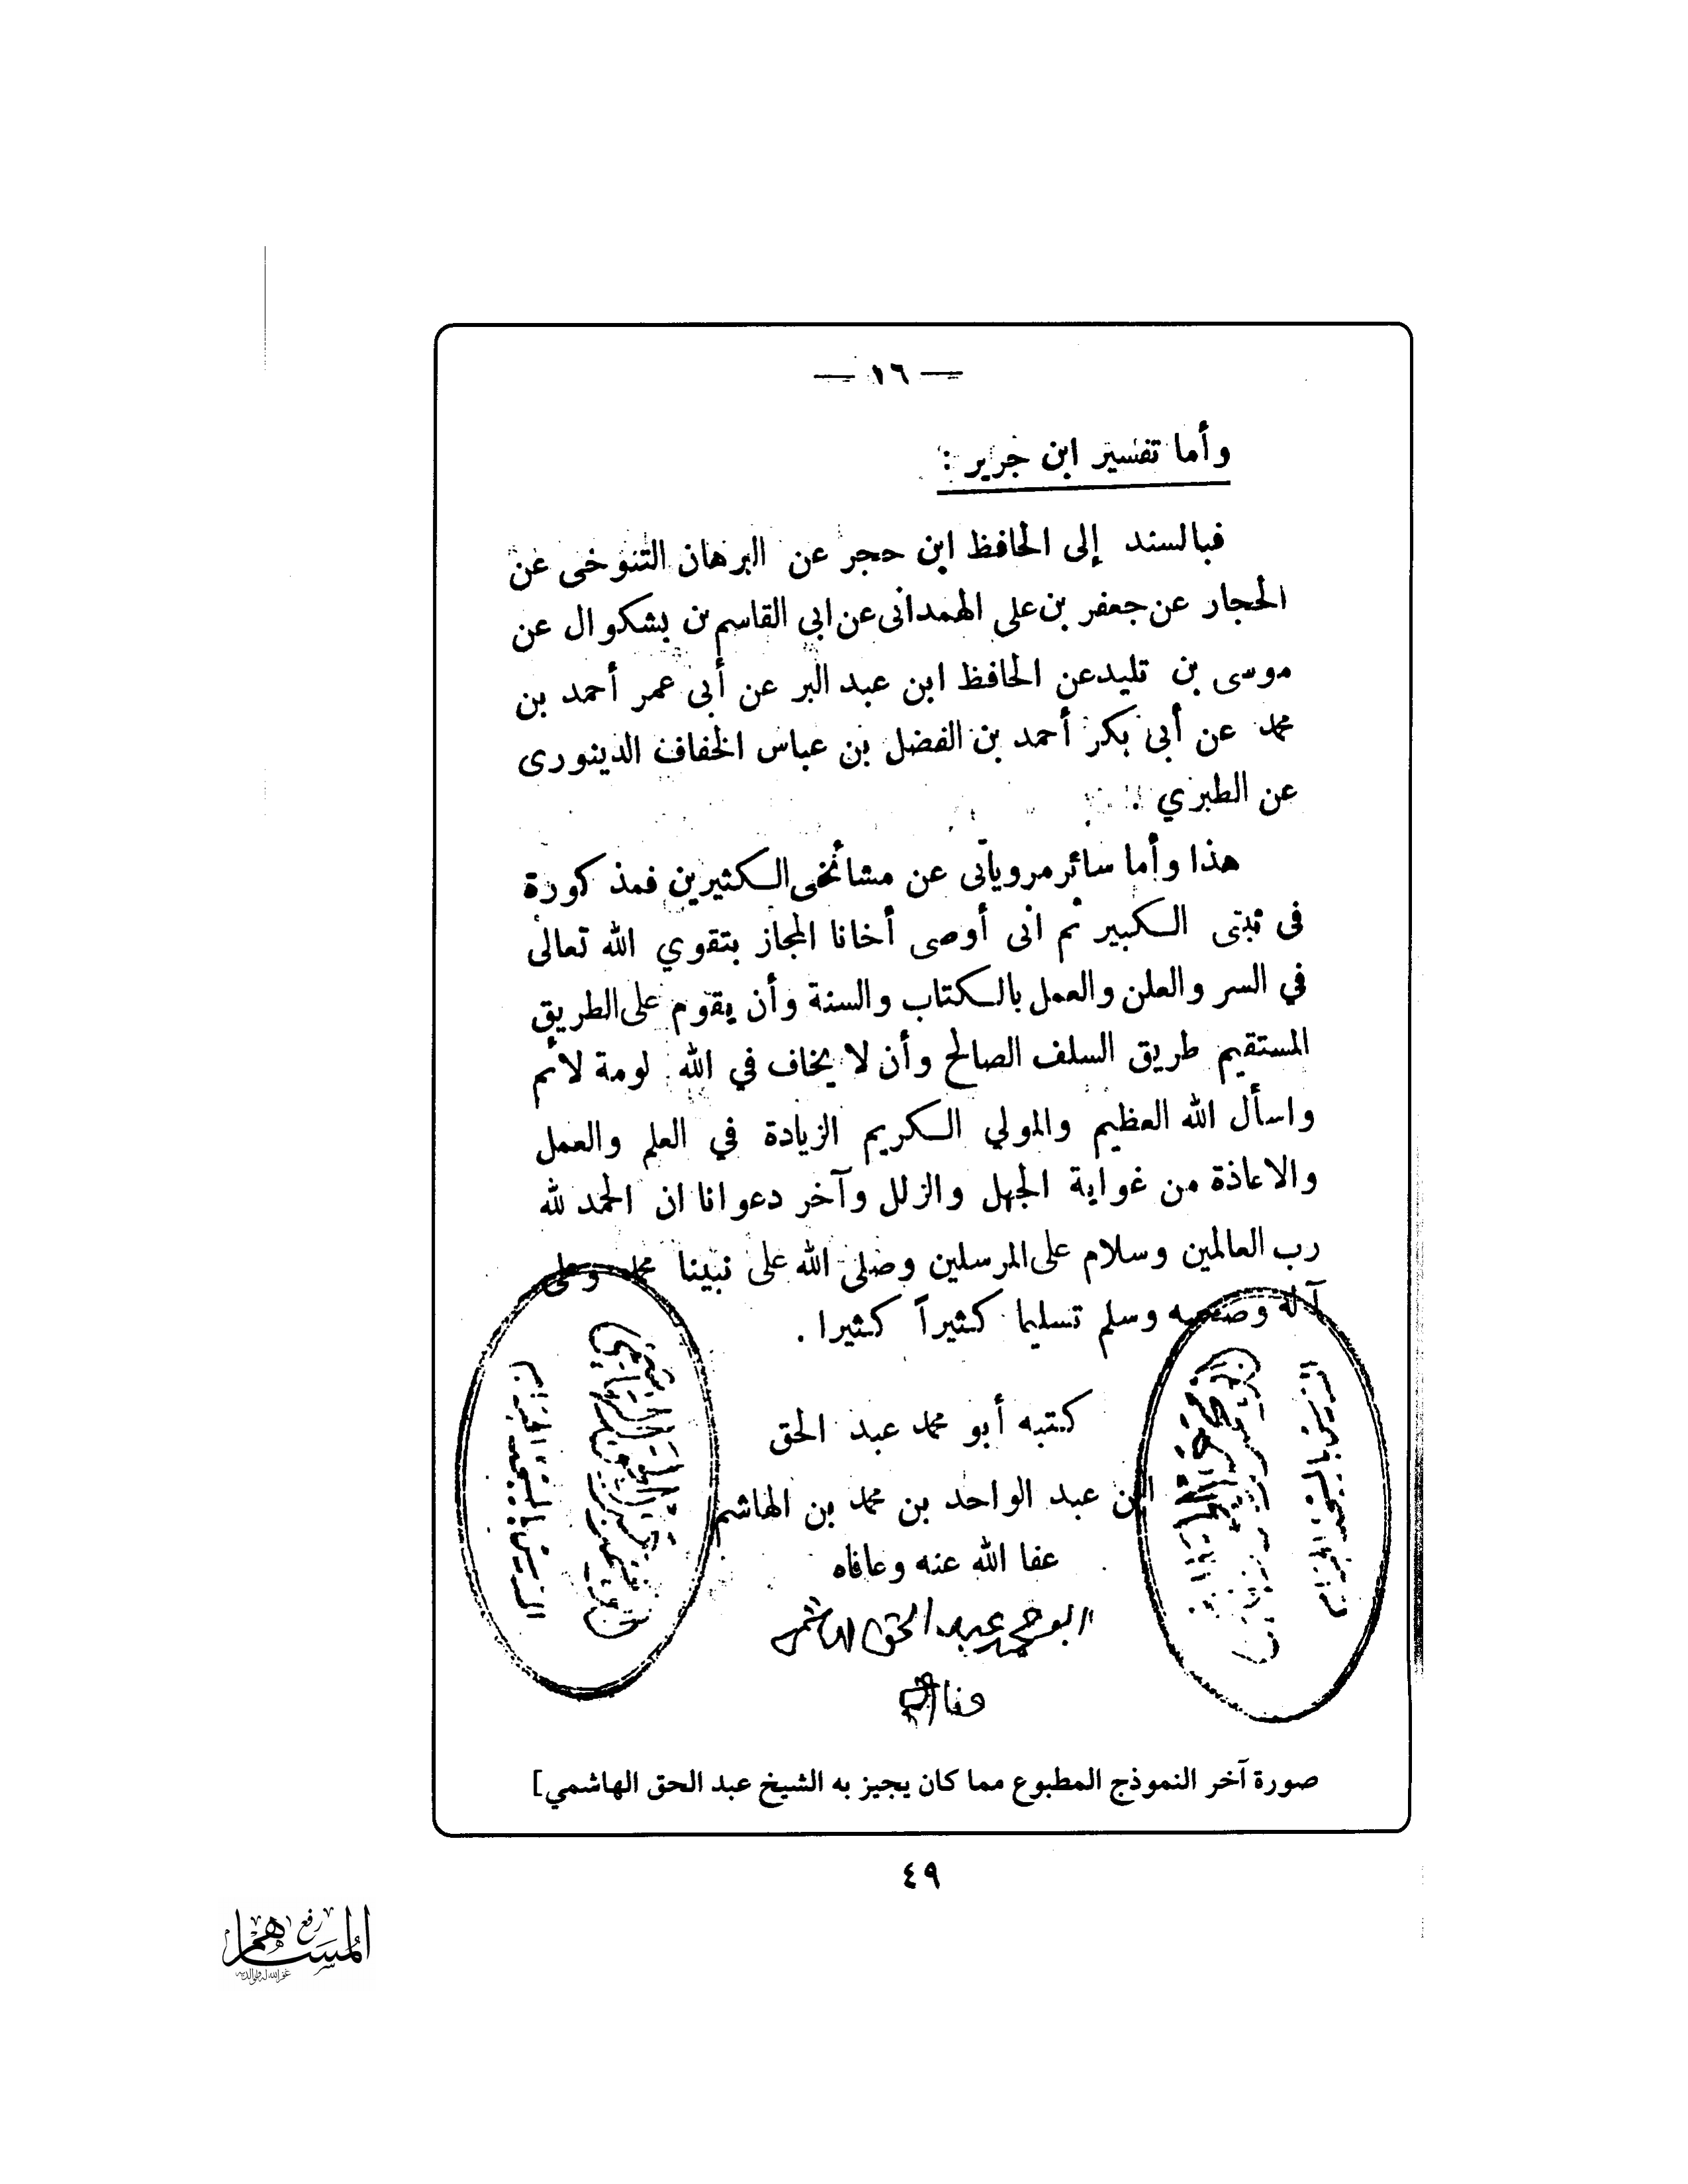 — ١٦ —
وأما تفسير ابن جرير :
فبالسند إلى الحافظ ابن حجر عن البرهان التنوخى عن
الحجار عن جعفر بن على الهمدانى عن ابى القاسم بن بشكوال عن
موسى بن تليد عن الحافظ ابن عبد البر عن أبى عمر أحمد بن
محمد عن أبى بكر أحمد بن الفضل بن عباس الخفاف الدينورى
عن الطبري .
هذا وأما سائر مروياتى عن مشائخى الكثيرين فمذكورة
فى ثبتى الكبير ثم انى أوصى أخانا المجاز بتقوي الله تعالى
في السر والعلن والعمل بالكتاب والسنة وأن يقوم على الطريق
المستقيم طريق السلف الصالح وأن لا يخاف في الله لومة لائم
واسأل الله العظيم والمولي الكريم الزيادة في العلم والعمل
والاعاذة من غواية الجهل والزلل وآخر دعوانا ان الحمد لله
رب العالمين وسلام على المرسلين وصلى الله على نبينا محمد وعلى
آله وصحبه وسلم تسليما كثيراً كثيرا .
كتبه أبو محمد عبد الحق
ابن عبد الواحد بن محمد بن الهاشم
عفا الله عنه وعافاه
ابو محمد عبد الحق الهاشمي
صورة آخر النموذج المطبوع مما كان يجيز به الشيخ عبد الحق الهاشمي]
٤٩